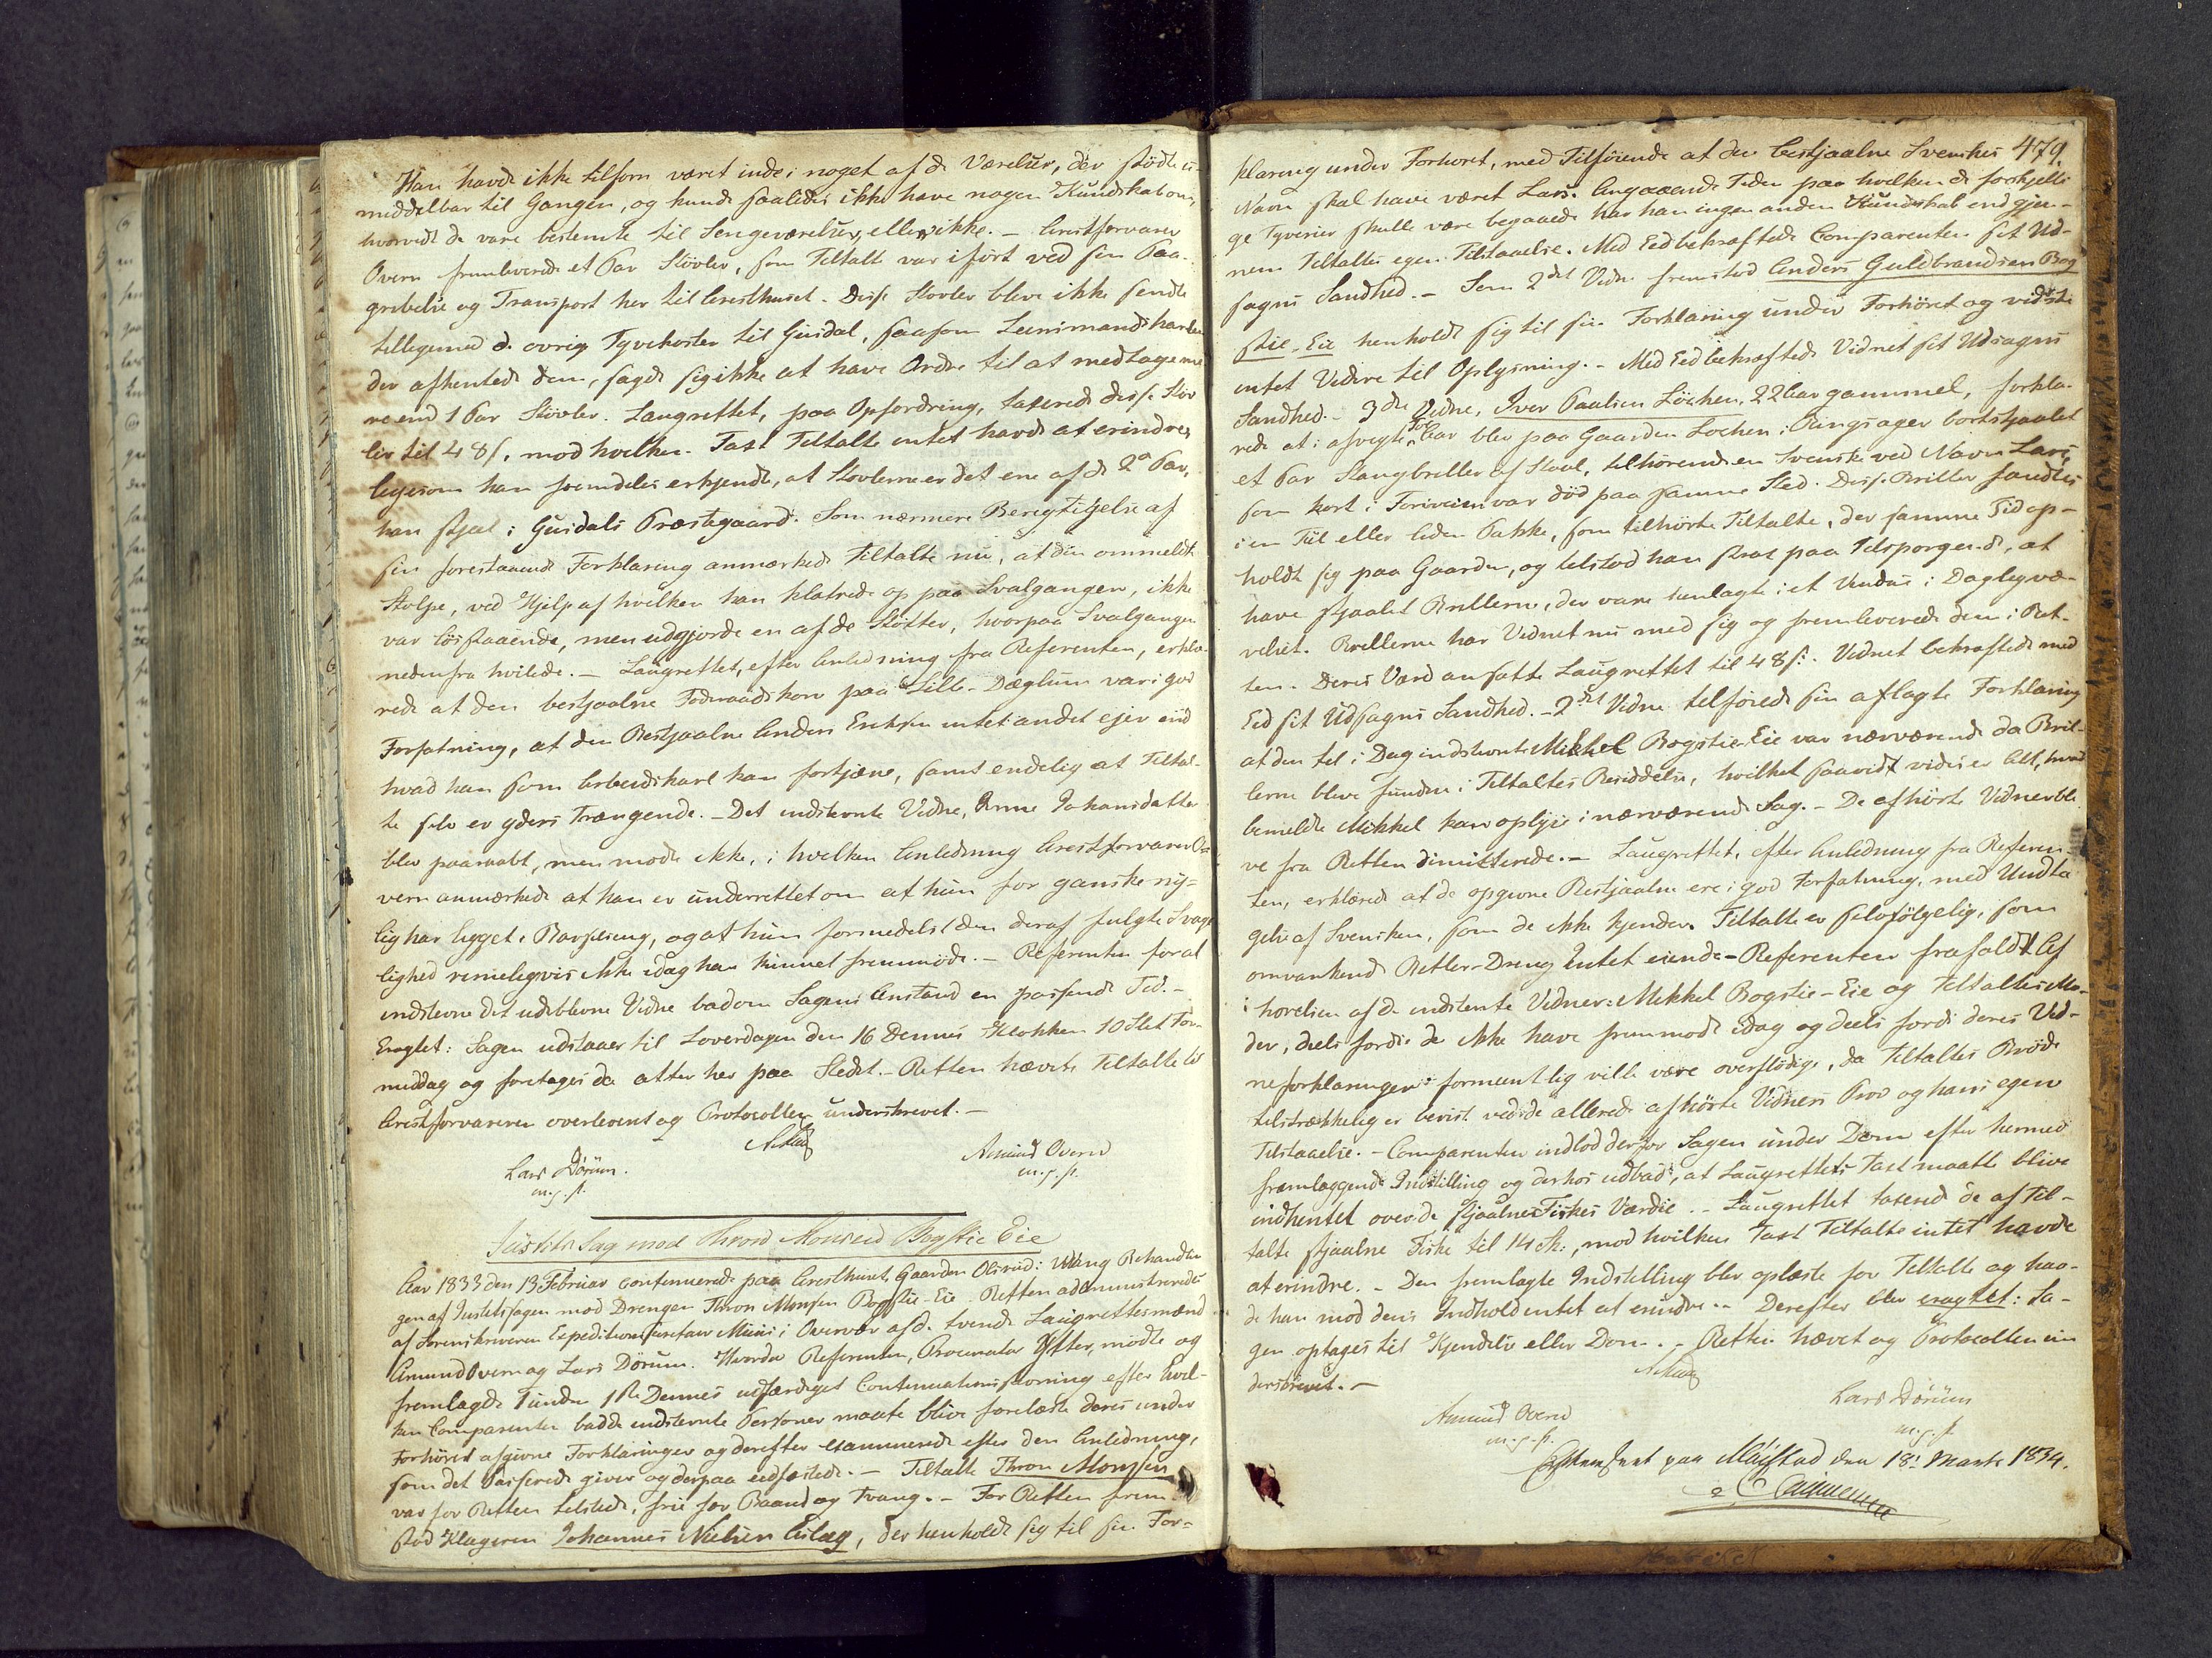 Han havde ikke tilforn været inde i noget af de Værelser, der stødte u-
middelbar til Gangen, og kunde saaledes ikke have nogen Kundskab om,
hvorvidt de vare bestemte til Sengeværelser eller ikke. – Arrestforvarer
Overn fremleverede et Par Støvler, som Tiltalte var iført ved sin Paa-
gribelse og Transport her til Arresthuset. Disse Støvler bleve ikke sendte
tilligemed de øvrige Tyvekoster til Gusdal, saasom Lensmandskarlen
der afhentede dem, sagde sig ikke at have Ordre til at medtage me-
re end 1 Par Støvler. Laugrettet, paa Opfordring, taxerede disse Støv
ler til 48 s, mod hvilken Taxt Tiltalte intet havde at erindre,
ligesom han fremdeles erkjendte, at Støvlerne er det ene af de 2de Par,
han stjal i Gusdals Præstegaard. Som nærmere Berigtigelse af
sin forestaaende Forklaring anmærkede Tiltalte nu, at den ommeldte
Stolpe, ved Hjelp af hvilken han klatrede op paa Svalgangen, ikke
var løsstaaende, men udgjorde en af de Støtter, hvorpaa Svalgangen
nedenfra hvilede. – Laugrettet, efter Anledning fra Referenten, erklæ-
rede at den bestjaalne Føderaadskone paa Lille-Dæglum var i god
Forfatning, at den Bestjaalne Anders Eriksen intet andet ejer end
hvad han som Arbeidskarl kan fortjene, samt endelig at Tiltal-
te selv er yderst Trængende. – Det indstevnte Vidne, Anne Johansdatter
blev paaraabt, men mødte ikke, i hvilken Anledning Arrestforvarer O-
vern anmærkede at han er underrettet om at hun for ganske ny-
lig har ligget i Barselseng, og at hun formedelst den deraf fulgte Svage
lighed rimeligvis ikke idag har kunnet fremmøde. – Referenten for at
indstevne det udeblevne Vidne bad om Sagens Anstand en passende Tid. –
Eragtet: Sagen udstaaer til Løverdagen den 16 Dennes Klokken 10 Slet For-
middag og foretages da atter her paa Stedet. – Retten hævet, Tiltalte til
Arrestforvareren overleveret og Protocollen underskrevet. –
Lars Dørum. Amund Overn
m.f.p. m.f.p.
Justits Sag mod Thron Monsen Bogstie Eie
Aar 1833 den 13 Februar continuerede paa Arresthuset, Gaarden Olsrud i Vang Behandlin
gen af Justitssagen mod Drengen Thron Monsen Bogstie-Eie. Retten administreredes
af Sorenskriveren Expeditionssecretair Münz i Overvær af de tvende Laugrettesmænd
Amund Overn og Lars Dørum. Hvorda Referenten, Procurator Ytter, mødte og
fremlagde 1 under 1ste Dennes udfærdiget Continuationsstevning efter hvil-
ken Comparenten badde indstevnte Personer maate blive forelæste deres under
Forhøret afgivne Forklaringer og derefter examinerede efter den Anledning,
som det Passerede giver og derpaa eedfæstede. – Tiltalte Thron Monsen
var for Retten tilstede, frie for Baand og Tvang. – For Retten frem-
stod Klageren Johannes Nielsen Aslag, der henholdt sig til sin For-
479.
klaring under Forhøret, med Tilføiende at den bestjaalne Svenskes
Navn skal have været Lars. Angaaende Tiden paa hvilken de forskjelli
ge Tyverier skulle være begaaede har han ingen anden Kundskab end gjen-
nem Tiltaltes egen Tilstaaelse. Med Eed bekræftede Comparenten sit Ud-
sagns Sandhed. – Som 2det Vidne fremstod Anders Guldbrandsen Bog
stie-Eie henholdt sig til sin Forklaring under Forhøret og vidste
intet Videre til Oplysning. – Med Eed bekræftede Vidnet sit Udsagns
Sandhed. – 3die Vidne, Iver Paulsen Løchen, 22 Aar gammel, forkla-
rede at i afvigte For Aar blev paa Gaarden Løchen i Ringsager bortstjaalet
et Par Stangbriller af Staal, tilhørende en Svenske ved Navn Lars,
som kort i Forveien var død paa samme Sted. Disse Briller fandtes
i en Tiil eller liden Pakke, som tilhørte Tiltalte, der samme Tid op-
holdt sig paa Gaarden, og tilstod han strax paa Tilspørgende, at
have stjaalet Brillerne, der vare henlagte i et Vindue i Dagligvæ-
relset. Brillerne har Vidnet nu med sig og fremleverede dem i Ret-
ten. Deres Værd ansatte Laugrettet til 48 s. Vidnet bekræftede med
Eed sit Udsagns Sandhed. – 2det Vidne tilførede sin aflagte Forklaring
at den til i Dag indstevnte Mikkel Bogstie-Eie var nærværende da Bril-
lerne bleve fundne i Tiltaltes Besiddelse, hvilket saavidt vides er Alt, hvad
bemeldte Mikkel kan oplyse i nærværende Sag. – De afhørte Vidner ble
ve fra Retten dimitterede. – Laugrettet, efter Anledning fra Referen-
ten, erklærede at de opgivne Bestjaalne ere i god Forfatning, med Undta
gelse af Svensken, som de ikke kjender. Tiltalte er selvfølgelig, som
omvankende Betler-Dreng Intet eiende. – Referenten frafaldt Af
hørelsen af de indstevnte Vidner: Mikkel Bogstie-Eie og Tiltaltes Mo-
der, deels fordi de ikke have fremmødt idag og deels fordi deres Vid-
neforklaringer formeentlig ville være overflødige, da Tiltaltes Brøde
tilstrækkelig er bevist ved de allerede afhørte Vidners Prov og hans egen
Tilstaaelse. – Comparenten indlod derfor Sagen under Dom efter hermed
fremlæggende Indstilling og derhos udbad, at Laugrettets Taxt maatte blive
indhentet over de stjaalne Fiskes Værdie. – Laugrettet taxered de af Til-
talte stjaalne Fiske til 14 sk:, mod hvilken Taxt Tiltalte intet havde
at erindre. – Den fremlagte Indstilling blev oplæst for Tiltalte og hav-
de han mod dens Indhold intet at erindre. – Derefter blev eragtet: Sa-
gen optages til Kjendelse eller Dom. – Retten hævet og Protocollen un
derskrevet. –
Amund Overn Lars Dørum
m.f.p. m.f.p.
paa Maistad den 18 Marts 1834.